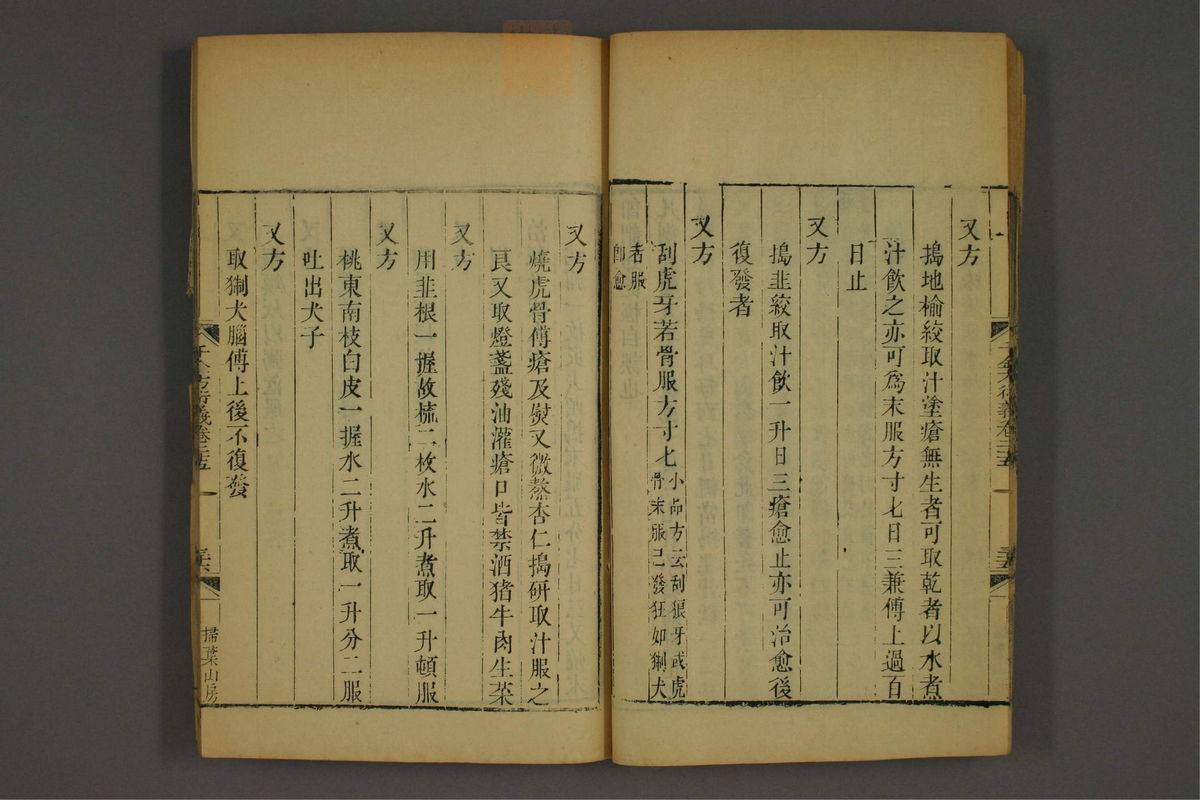 又方
搗地榆絞取汁塗瘡無生者可取乾者以水煮
汁飲之亦可為末服方寸匕日三兼傅上過百
日止
又方
搗韭絞取汁飲一升日三瘡愈止亦可治愈後
復發者
又方
刮虎牙若骨服方寸匕
小品方云刮狼牙或虎
骨末服已發狂如猘犬
者服
即愈
又方
燒虎骨傅瘡及熨又微熬杏仁搗研取汁服之
良又取燈盞殘油灌瘡口皆禁酒猪牛肉生菜
又方
用韭根一握故梳二枚水二升煮取一升頓服
又方
桃東南枝白皮一握水二升煮取一升分二服
吐出犬子
又方
取猘犬腦傅上後不復發
千金方衍義卷二十五
掃葉山房